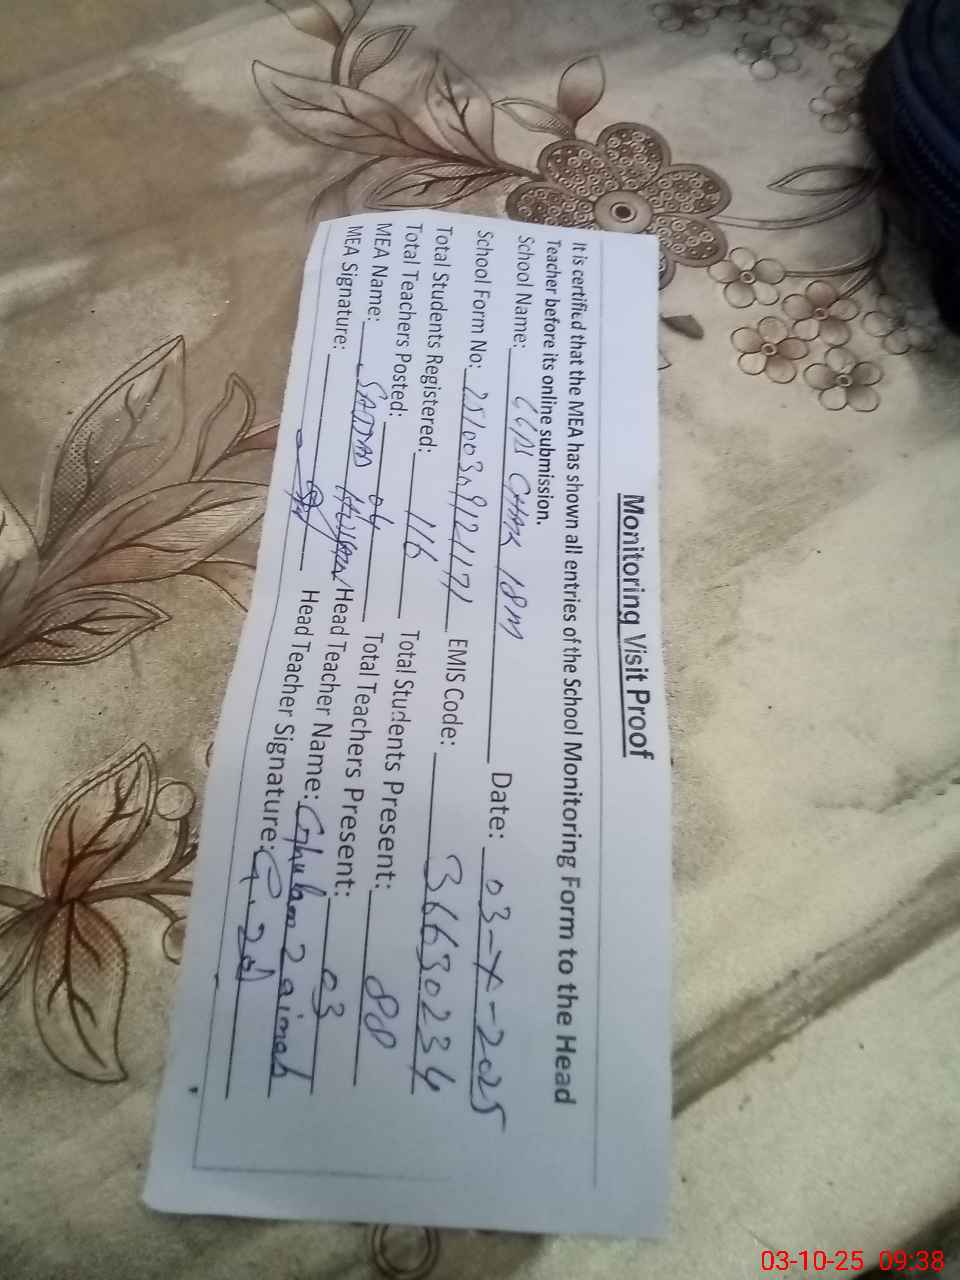 Monitoring Visit Proof
It is certified that the MEA has shown all entries of the School Monitoring Form to the Head
Teacher before its online submission.
School Name: CHAK 18M Date: 03-X-2025
School Form No: EMIS Code: 36630234
Total Students Registered: 116 Total Students Present: 88
Total Teachers Posted: 04 Total Teachers Present: 03
MEA Name: SADDAM HUSSAIN Head Teacher Name: Ghulam Zainab
MEA Signature: Head Teacher Signature:
03-10-25 09:38